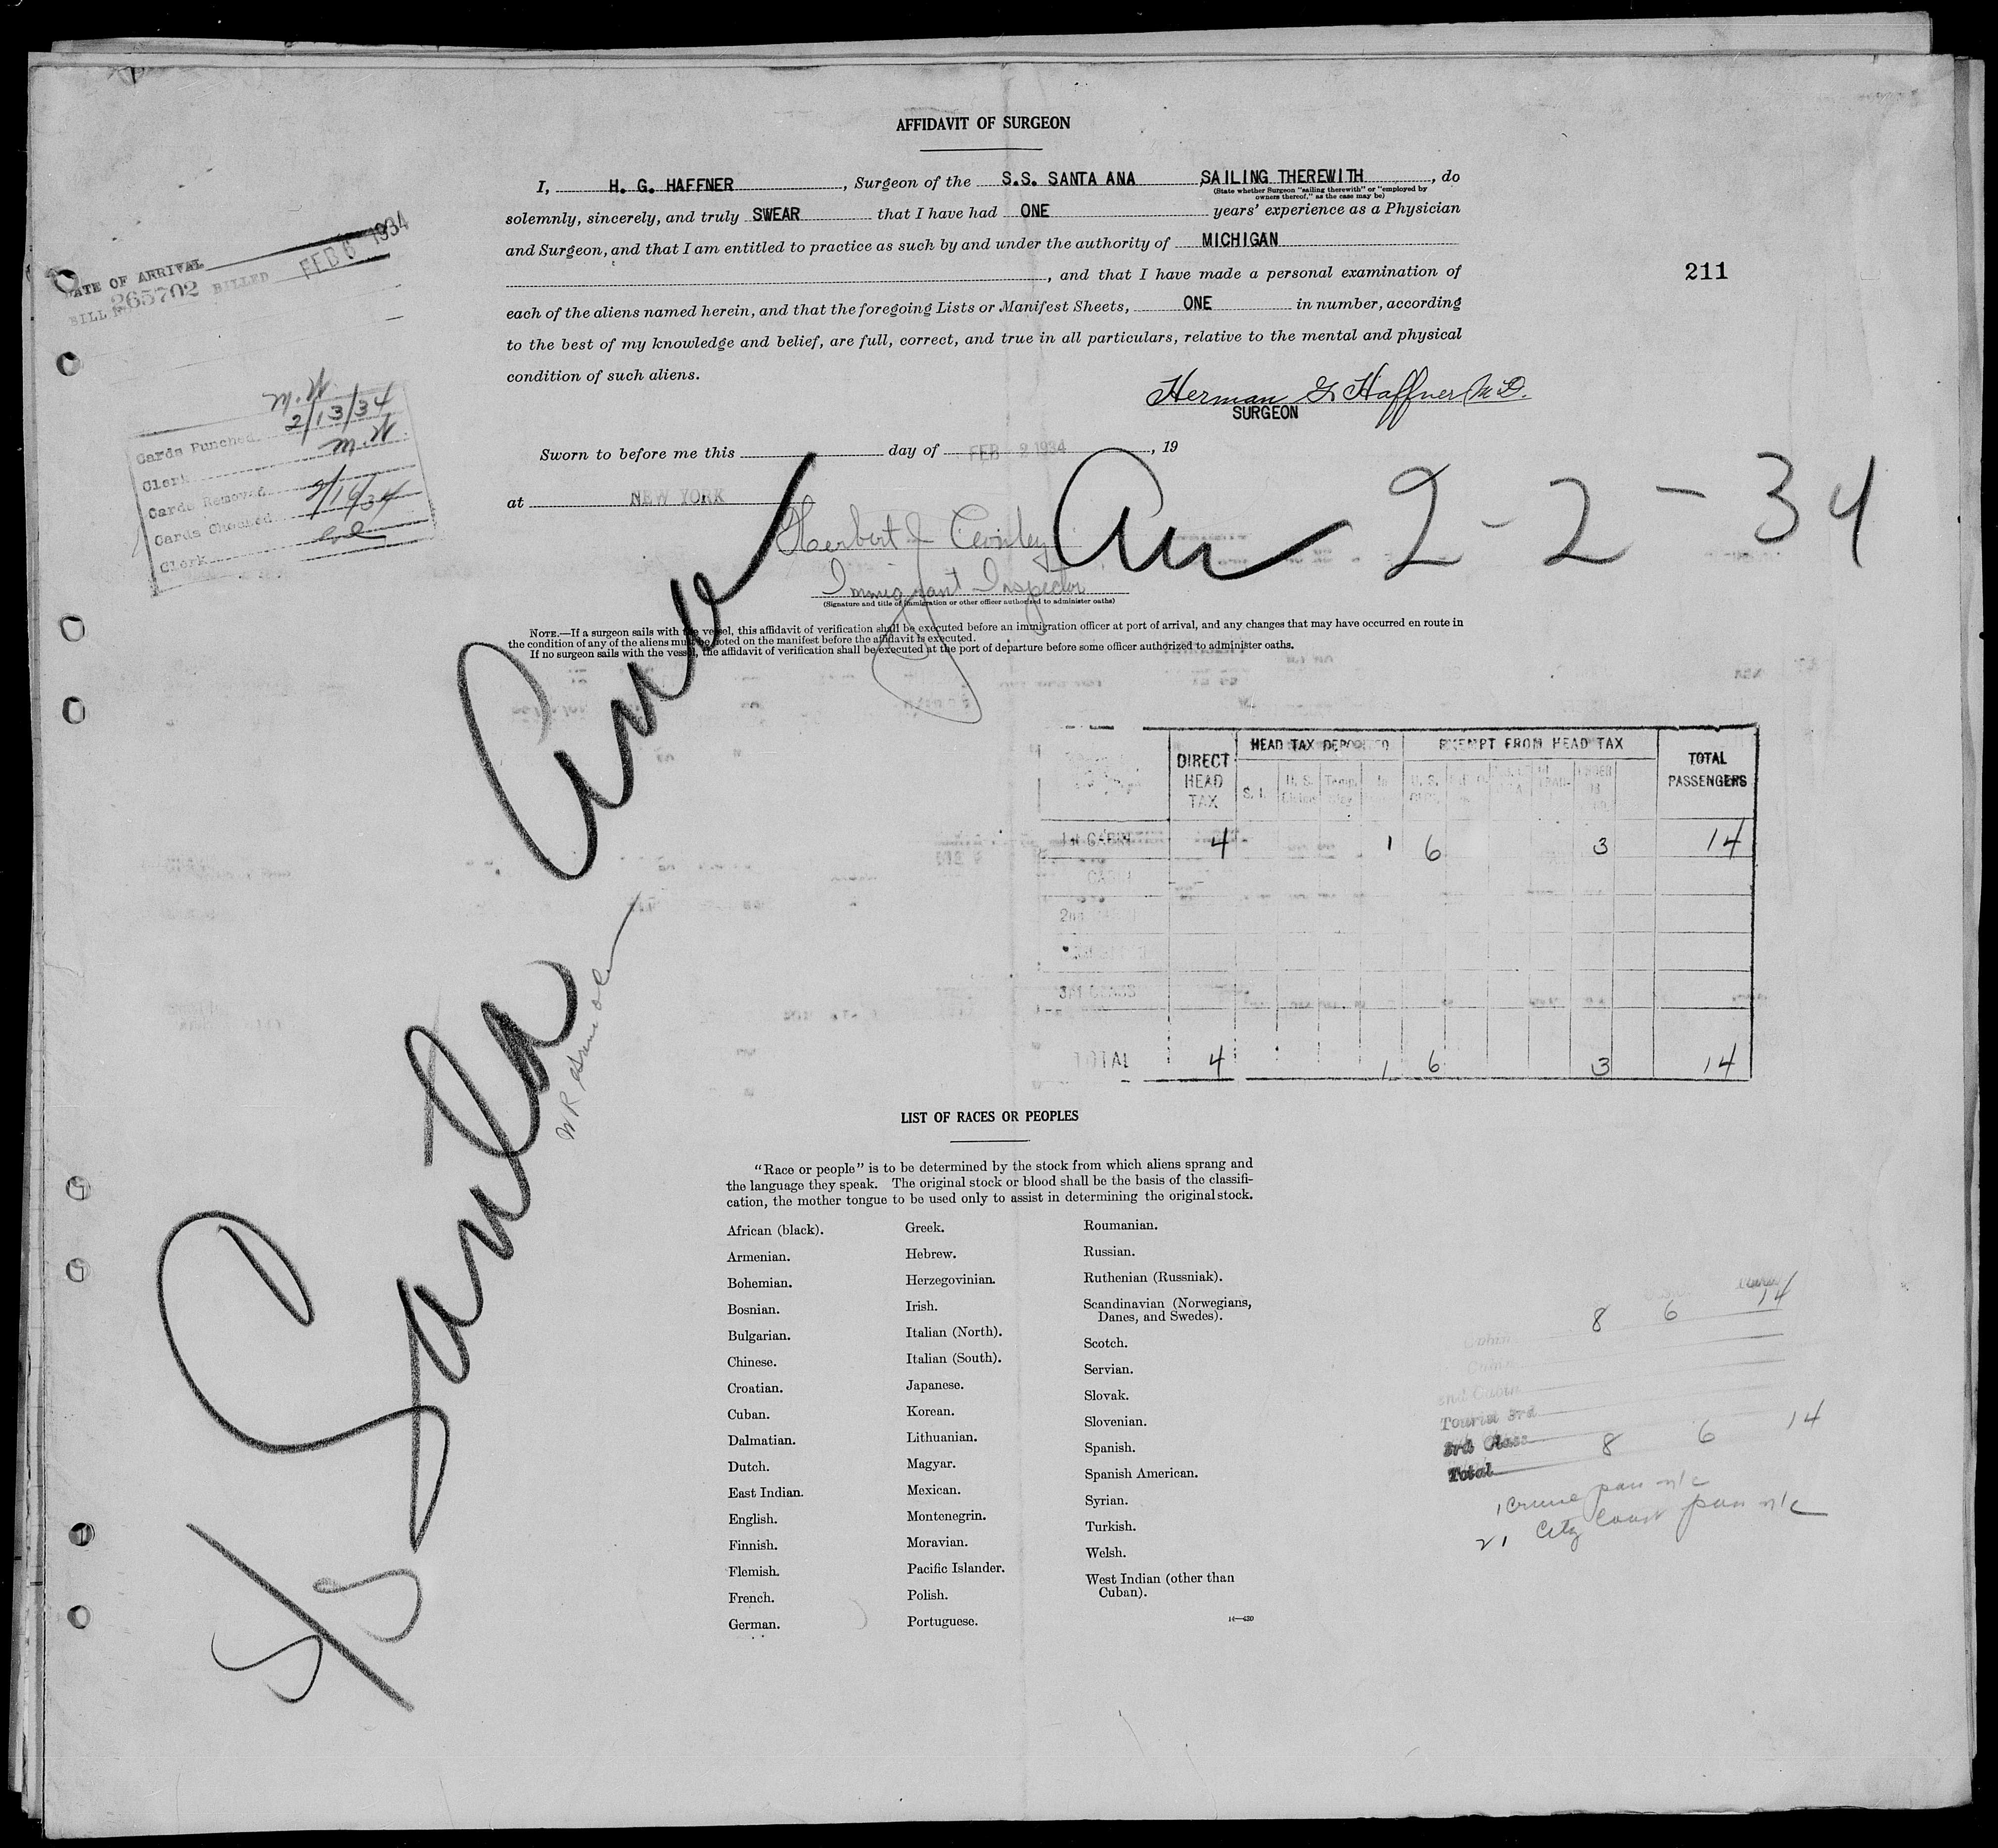 AFFIDAVIT OF SURGEON
I, H. G. HAFFNER, Surgeon of the S.S. SANTA ANA SAILING THEREWITH, do
(State whether Surgeon "sailing therewith" or "employed by
owners thereof," as the case may be)
solemnly, sincerely, and truly SWEAR that I have had ONE years' experience as a Physician
and Surgeon, and that I am entitled to practice as such by and under the authority of MICHIGAN
, and that I have made a personal examination of
each of the aliens named herein, and that the foregoing Lists or Manifest Sheets, ONE in number, according
to the best of my knowledge and belief, are full, correct, and true in all particulars, relative to the mental and physical
condition of such aliens.
Herman G. Haffner M.D.
SURGEON
Sworn to before me this day of FEB 2 1934, 19
at NEW YORK
Herbert J
Immigrant Inspector
(Signature and title of immigration or other officer authorized to administer oaths)
NOTE.—If a surgeon sails with the vessel, this affidavit of verification shall be executed before an immigration officer at port of arrival, and any changes that may have occurred en route in
the condition of any of the aliens must be noted on the manifest before the affidavit is executed.
If no surgeon sails with the vessel, the affidavit of verification shall be executed at the port of departure before some officer authorized to administer oaths.
211
DATE OF ARRIVAL
BILL No. 265702 BILLED FEB 6 1934
M.K.
Cards Punched 2/13/34
Clerk M.K.
Cards Removed
Cards Checked
Clerk
S/S Santa Ana
Arr 2-2-34
DIRECT HEAD TAX
HEAD TAX DEPOSITED
EXEMPT FROM HEAD TAX
TOTAL PASSENGERS
S. I.
1st CABIN 4 1 6 3 14
TOTAL 4 1 6 3 14
LIST OF RACES OR PEOPLES
"Race or people" is to be determined by the stock from which aliens sprang and
the language they speak. The original stock or blood shall be the basis of the classifi-
cation, the mother tongue to be used only to assist in determining the original stock.
African (black).
Armenian.
Bohemian.
Bosnian.
Bulgarian.
Chinese.
Croatian.
Cuban.
Dalmatian.
Dutch.
East Indian.
English.
Finnish.
Flemish.
French.
German.
Greek.
Hebrew.
Herzegovinian.
Irish.
Italian (North).
Italian (South).
Japanese.
Korean.
Lithuanian.
Magyar.
Mexican.
Montenegrin.
Moravian.
Pacific Islander.
Polish.
Portuguese.
Roumanian.
Russian.
Ruthenian (Russniak).
Scandinavian (Norwegians,
Danes, and Swedes).
Scotch.
Servian.
Slovak.
Slovenian.
Spanish.
Spanish American.
Syrian.
Turkish.
Welsh.
West Indian (other than
Cuban).
14—430
Cabin 8 6 14
2nd Cabin
Tourist 3rd
3rd Class
Total 8 6 14